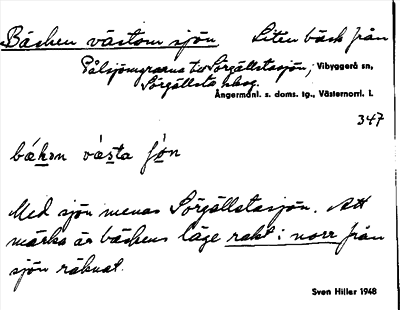 Bäcken västom sjön Liten bäck från
Pålsjömyrarna t. Sörgällstasjön, Vibyggerå sn,
Sörgällsta skog. Ångermanl. s. doms. tg., Västernorrl. l.
347
bäkən västa ʃön
Med sjön menas Sörgällstasjön. Att
märka är bäckens läge rakt i norr från
sjön räknat.
Sven Hiller 1948